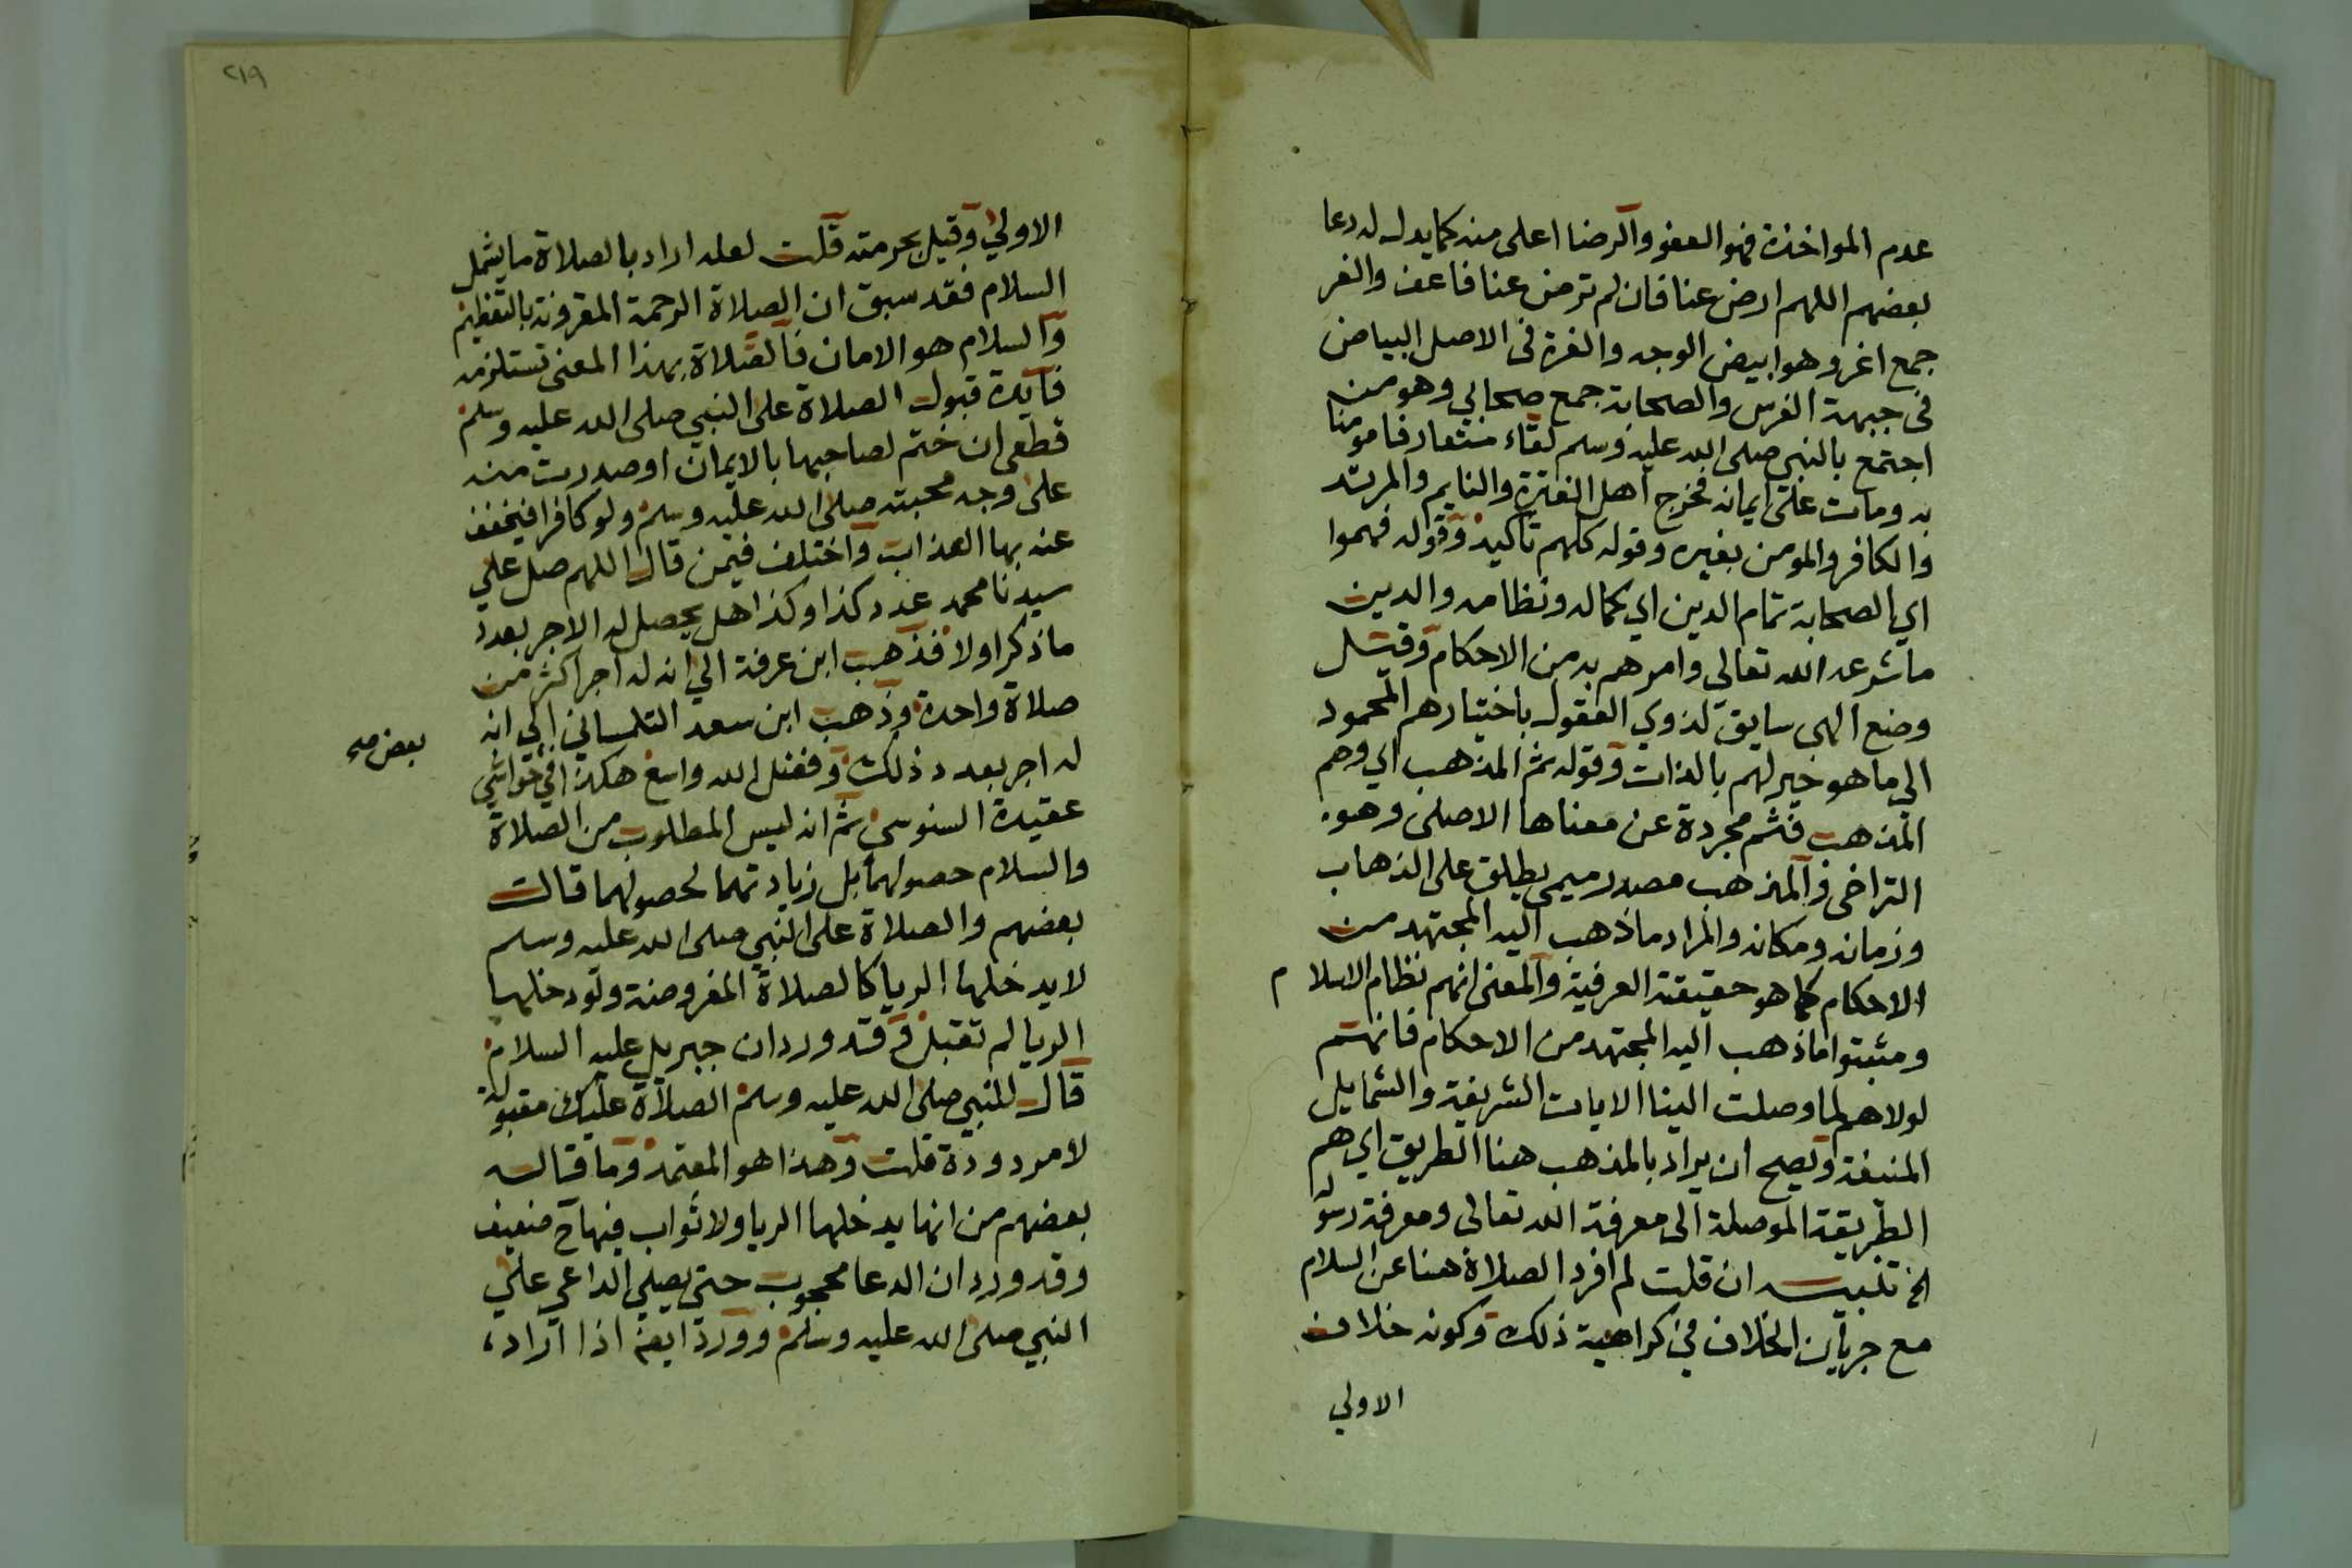 عدم المواخذة فهو العفو والرضا اعلى منه كما يدل له دعا
بعضهم اللهم ارض عنا فان لم ترض عنا فاعف والغر
جمع اغر وهو ابيض الوجه والغرة فى الاصل البياض
فى جبهة الفرس والصحابة جمع صحابي وهو من
اجتمع بالنبي صلى الله عليه وسلم لقاء متعارفا مومنا
به ومات على ايمانه فخرج اهل الفترة والنايم والمرتد
والكافر والمومن بغيره وقوله كلهم تاكيد وقوله فهموا
اي الصحابة تمام الدين اي كماله ونظامه والدين
ما شرعه الله تعالي وامرهم به من الاحكام وقيل
وضع الهي سايق لذوي العقول باختيارهم المحمود
الي ما هو خير لهم بالذات وقوله ثم المذهب اي وهم
المذهب فثم مجردة عن معناها الاصلى وهو
التراخى والمذهب مصدر ميمى يطلق على الذهاب
وزمانه ومكانه والمراد ما ذهب اليه المجتهد من
الاحكام كما هو حقيقته العرفية والمعنى انهم نظام الاسلام
ومثبتوا ما ذهب اليه المجتهد من الاحكام فانهم
لولاهم لما وصلت الينا الايات الشريفة والشمايل
المنيفة ويصح ان يراد بالمذهب هنا الطريق اي هم
الطريقة الموصلة الى معرفة الله تعالى ومعرفة رسوله
الخ تنبيه ان قلت لم افرد الصلاة هنا عن السلام
مع جريان الخلاف في كراهية ذلك وكونه خلاف
الاولي
٢١٩
الاولي وقيل بحرمته قلت لعله اراد بالصلاة ما يشمل
السلام فقد سبق ان الصلاة الرحمة المقرونة بالتعظيم
والسلام هو الامان فالصلاة بهذا المعنى تستلزمه
فايدة قبول الصلاة على النبي صلى الله عليه وسلم
قطعى ان ختم لصاحبها بالايمان او صدرت منه
على وجه محبته صلى الله عليه وسلم ولو كافرا فيخفف
عنه بها العذاب واختلف فيمن قال اللهم صل علي
سيدنا محمد عدد كذا وكذا هل يحصل له الاجر بعدد
ما ذكر اولا فذهب ابن عرفة الي انه له اجر اكثر من
صلاة واحدة وذهب ابن سعد التلمساني الي انه
له اجر بعدد ذلك وفضل الله واسع هكذا في حواشي
بعض صح
عقيدة السنوسي ثم انه ليس المطلوب من الصلاة
والسلام حصولهما بل زيادتهما لحصولهما قال
بعضهم والصلاة على النبي صلى الله عليه وسلم
لا يدخلها الريا كالصلاة المفروضة ولو دخلها
الريا لم تقبل وقد ورد ان جبريل عليه السلام
قال للنبي صلى الله عليه وسلم الصلاة عليك مقبولة
لا مردودة قلت وهذا هو المعتمد وما قاله
بعضهم من انها يدخلها الريا ولا ثواب فيها ح ضعيف
وقد ورد ان الدعا محجوب حتى يصلي الداعي علي
النبي صلى الله عليه وسلم وورد ايضا اذا اراد